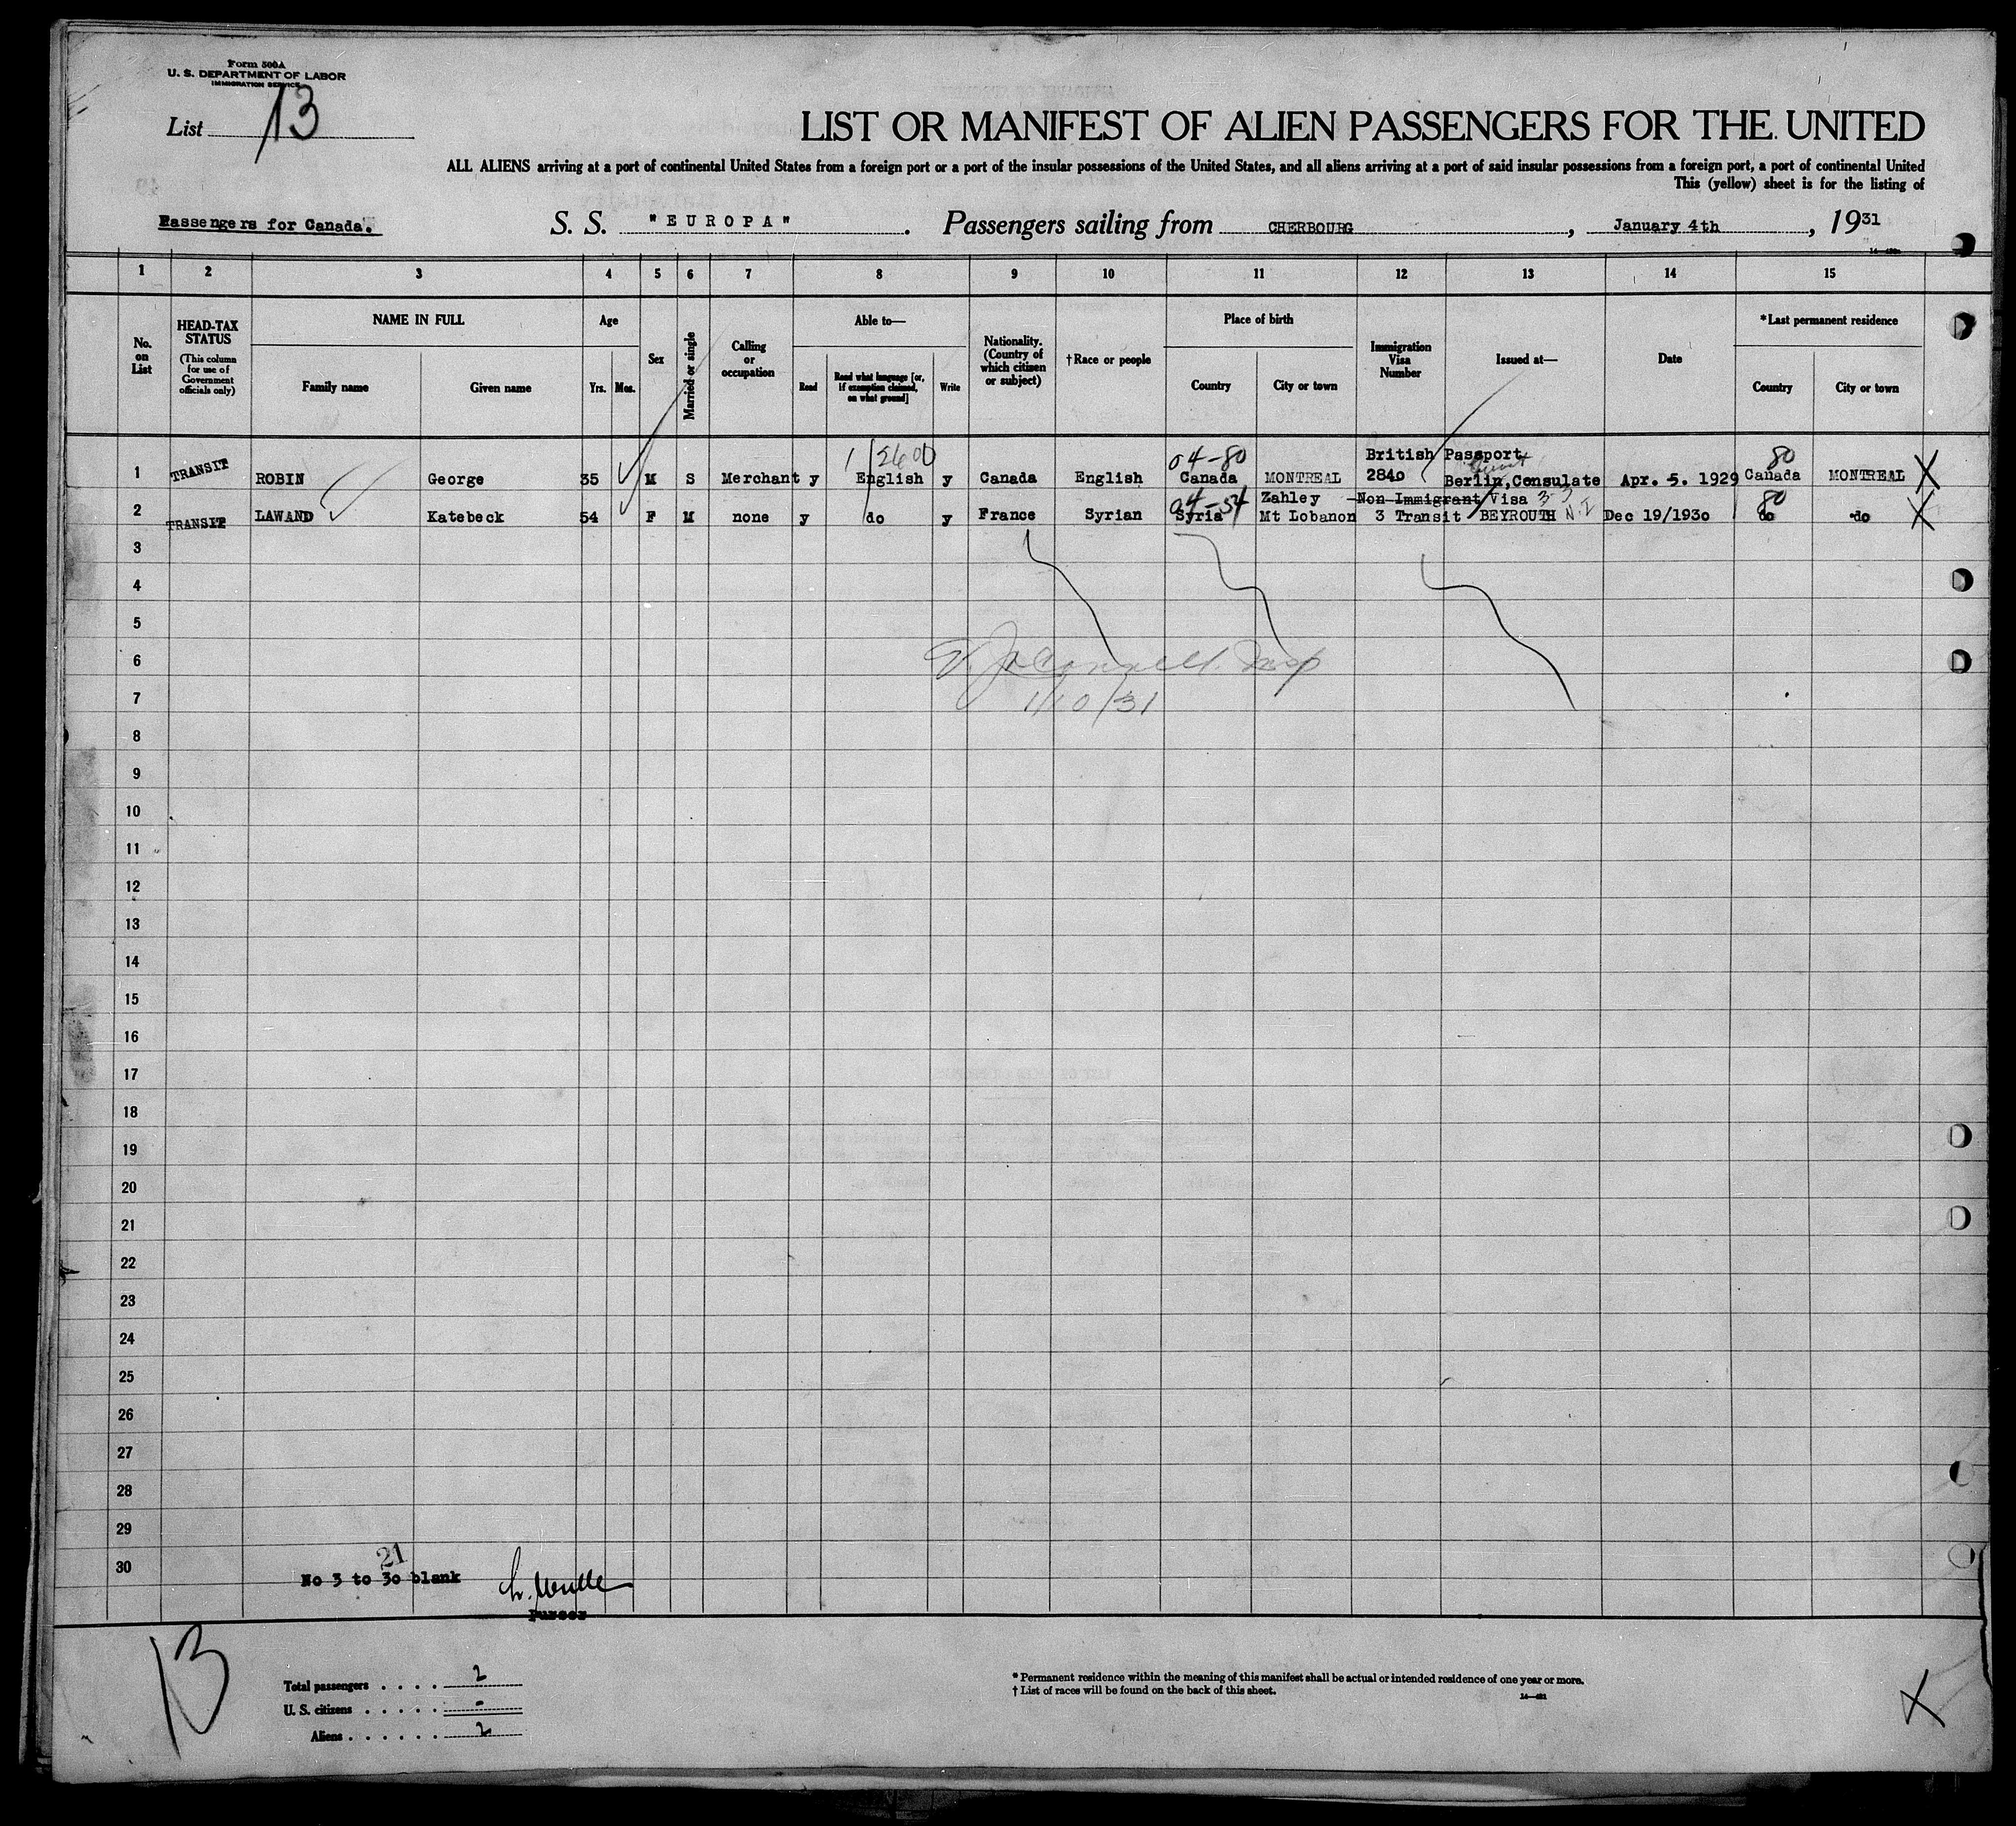 Form 500A
U. S. DEPARTMENT OF LABOR
IMMIGRATION SERVICE
List 13
LIST OR MANIFEST OF ALIEN PASSENGERS FOR THE UNITED
ALL ALIENS arriving at a port of continental United States from a foreign port or a port of the insular possessions of the United States, and all aliens arriving at a port of said insular possessions from a foreign port, a port of continental United
This (yellow) sheet is for the listing of
Passengers for Canada. S. S. "EUROPA". Passengers sailing from CHERBOURG, January 4th, 1931
1 2 3 4 5 6 7 8 9 10 11 12 13 14 15
No. on List
HEAD-TAX STATUS
(This column for use of Government officials only)
NAME IN FULL
Family name
Given name
Age
Yrs. Mos.
Sex
Married or single
Calling or occupation
Able to—
Read
Read what language [or, if exemption claimed, on what ground]
Write
Nationality. (Country of which citizen or subject)
†Race or people
Place of birth
Country
City or town
Immigration Visa Number
Issued at—
Date
*Last permanent residence
Country
City or town
1/2600 04-80 British Passport 80
1 TRANSIT ROBIN George 35 M S Merchant y English y Canada English Canada MONTREAL 2840 Berlin, Consulate Apr. 5. 1929 Canada MONTREAL X
04-54 Zahley Non-Immigrant Visa 80
2 TRANSIT LAWAND Katebeck 54 F M none y do y France Syrian Syria Mt Lobanon 3 Transit BEYROUTH Dec 19/1930 do do X
3
4
5
6
7
1/10/31
8
9
10
11
12
13
14
15
16
17
18
19
20
21
22
23
24
25
26
27
28
29
30
21
No 3 to 30 blank
Purser
13
Total passengers . . . . 2
U. S. citizens . . . . . -
Aliens . . . . . . 2
* Permanent residence within the meaning of this manifest shall be actual or intended residence of one year or more.
† List of races will be found on the back of this sheet.
X